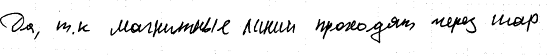 Да, т.к магнитные линии проходят через шар